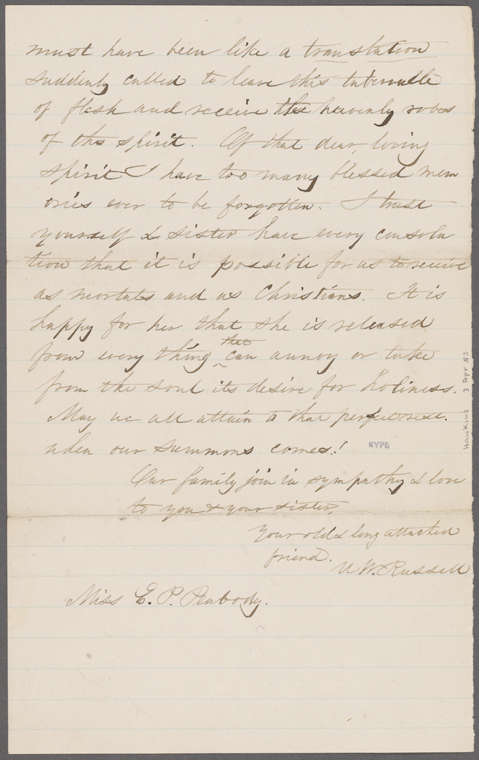 must have been like a translation
suddenly called to leave this tabernacle
of flesh and receive the heavenly robes
of the spirit. Of that dear, loving
spirit I have too many blessed mem
ories ever to be forgotten. I trust
yourself & sister have every consola
tion that it is possible for us to receive
as mortals and as Christians. It is
happy for her that she is released
from every thing that can annoy or take
from the soul its desire for holiness.
May we all attain to that perfect rest
when our summons comes!
NYPL
Our family join in sympathy & love
to you & your sister,
Your old & long attached
friend.
W. Russell
Miss E. P. Peabody.
Hawkins 3 Apr. 53